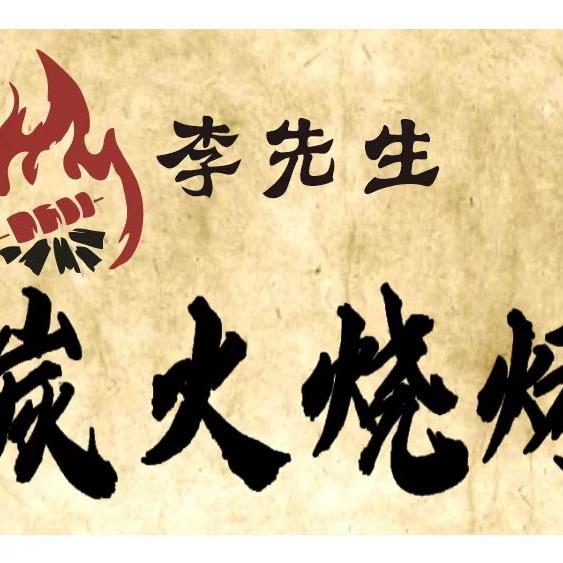 李先生
炭火烧烤